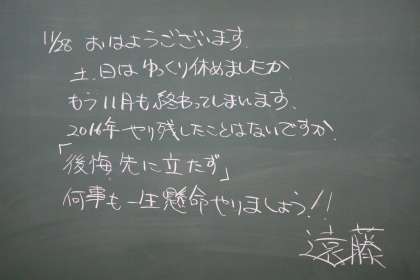 11/28 おはようございます.
土.日はゆっくり休めましたか.
もう11月も終わってしまいます.
2016年やり残したことはないですか.
「後悔先に立たず」
何事も一生懸命やりましょう!!
遠藤